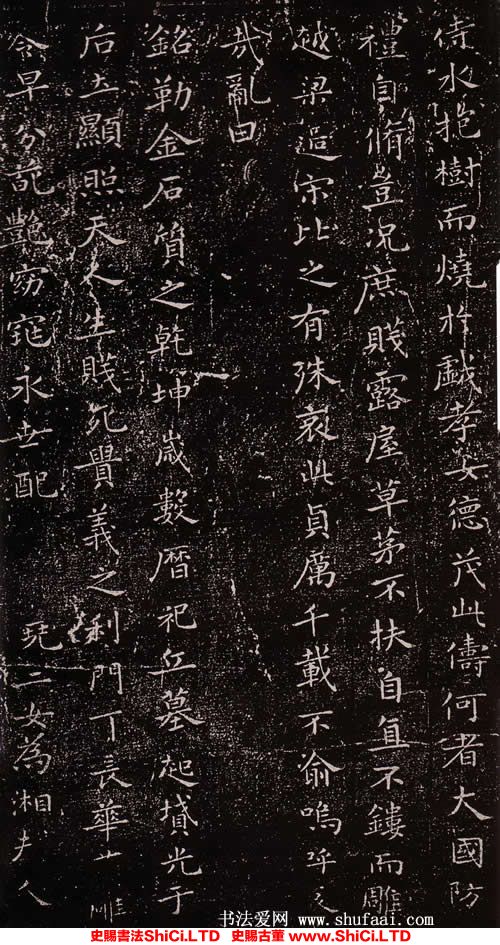 侍水抱樹而燒於戲孝女德茂此儔何者大國防
禮自脩豈況庶賤露屋草茅不扶自直不鏤而雕
越梁過宋比之有殊哀此貞厲千載不渝嗚呼
哉亂曰
銘勒金石質之乾坤歲數曆祀丘墓起墳光于
后土顯照天人生賤死貴義之利門 長華
早分葩艷窈窕永世配 堯二女為湘夫人
书法爱网 www.shufaai.com
史賜書法ShiCi.LTD 史賜古董ShiCi.LTD